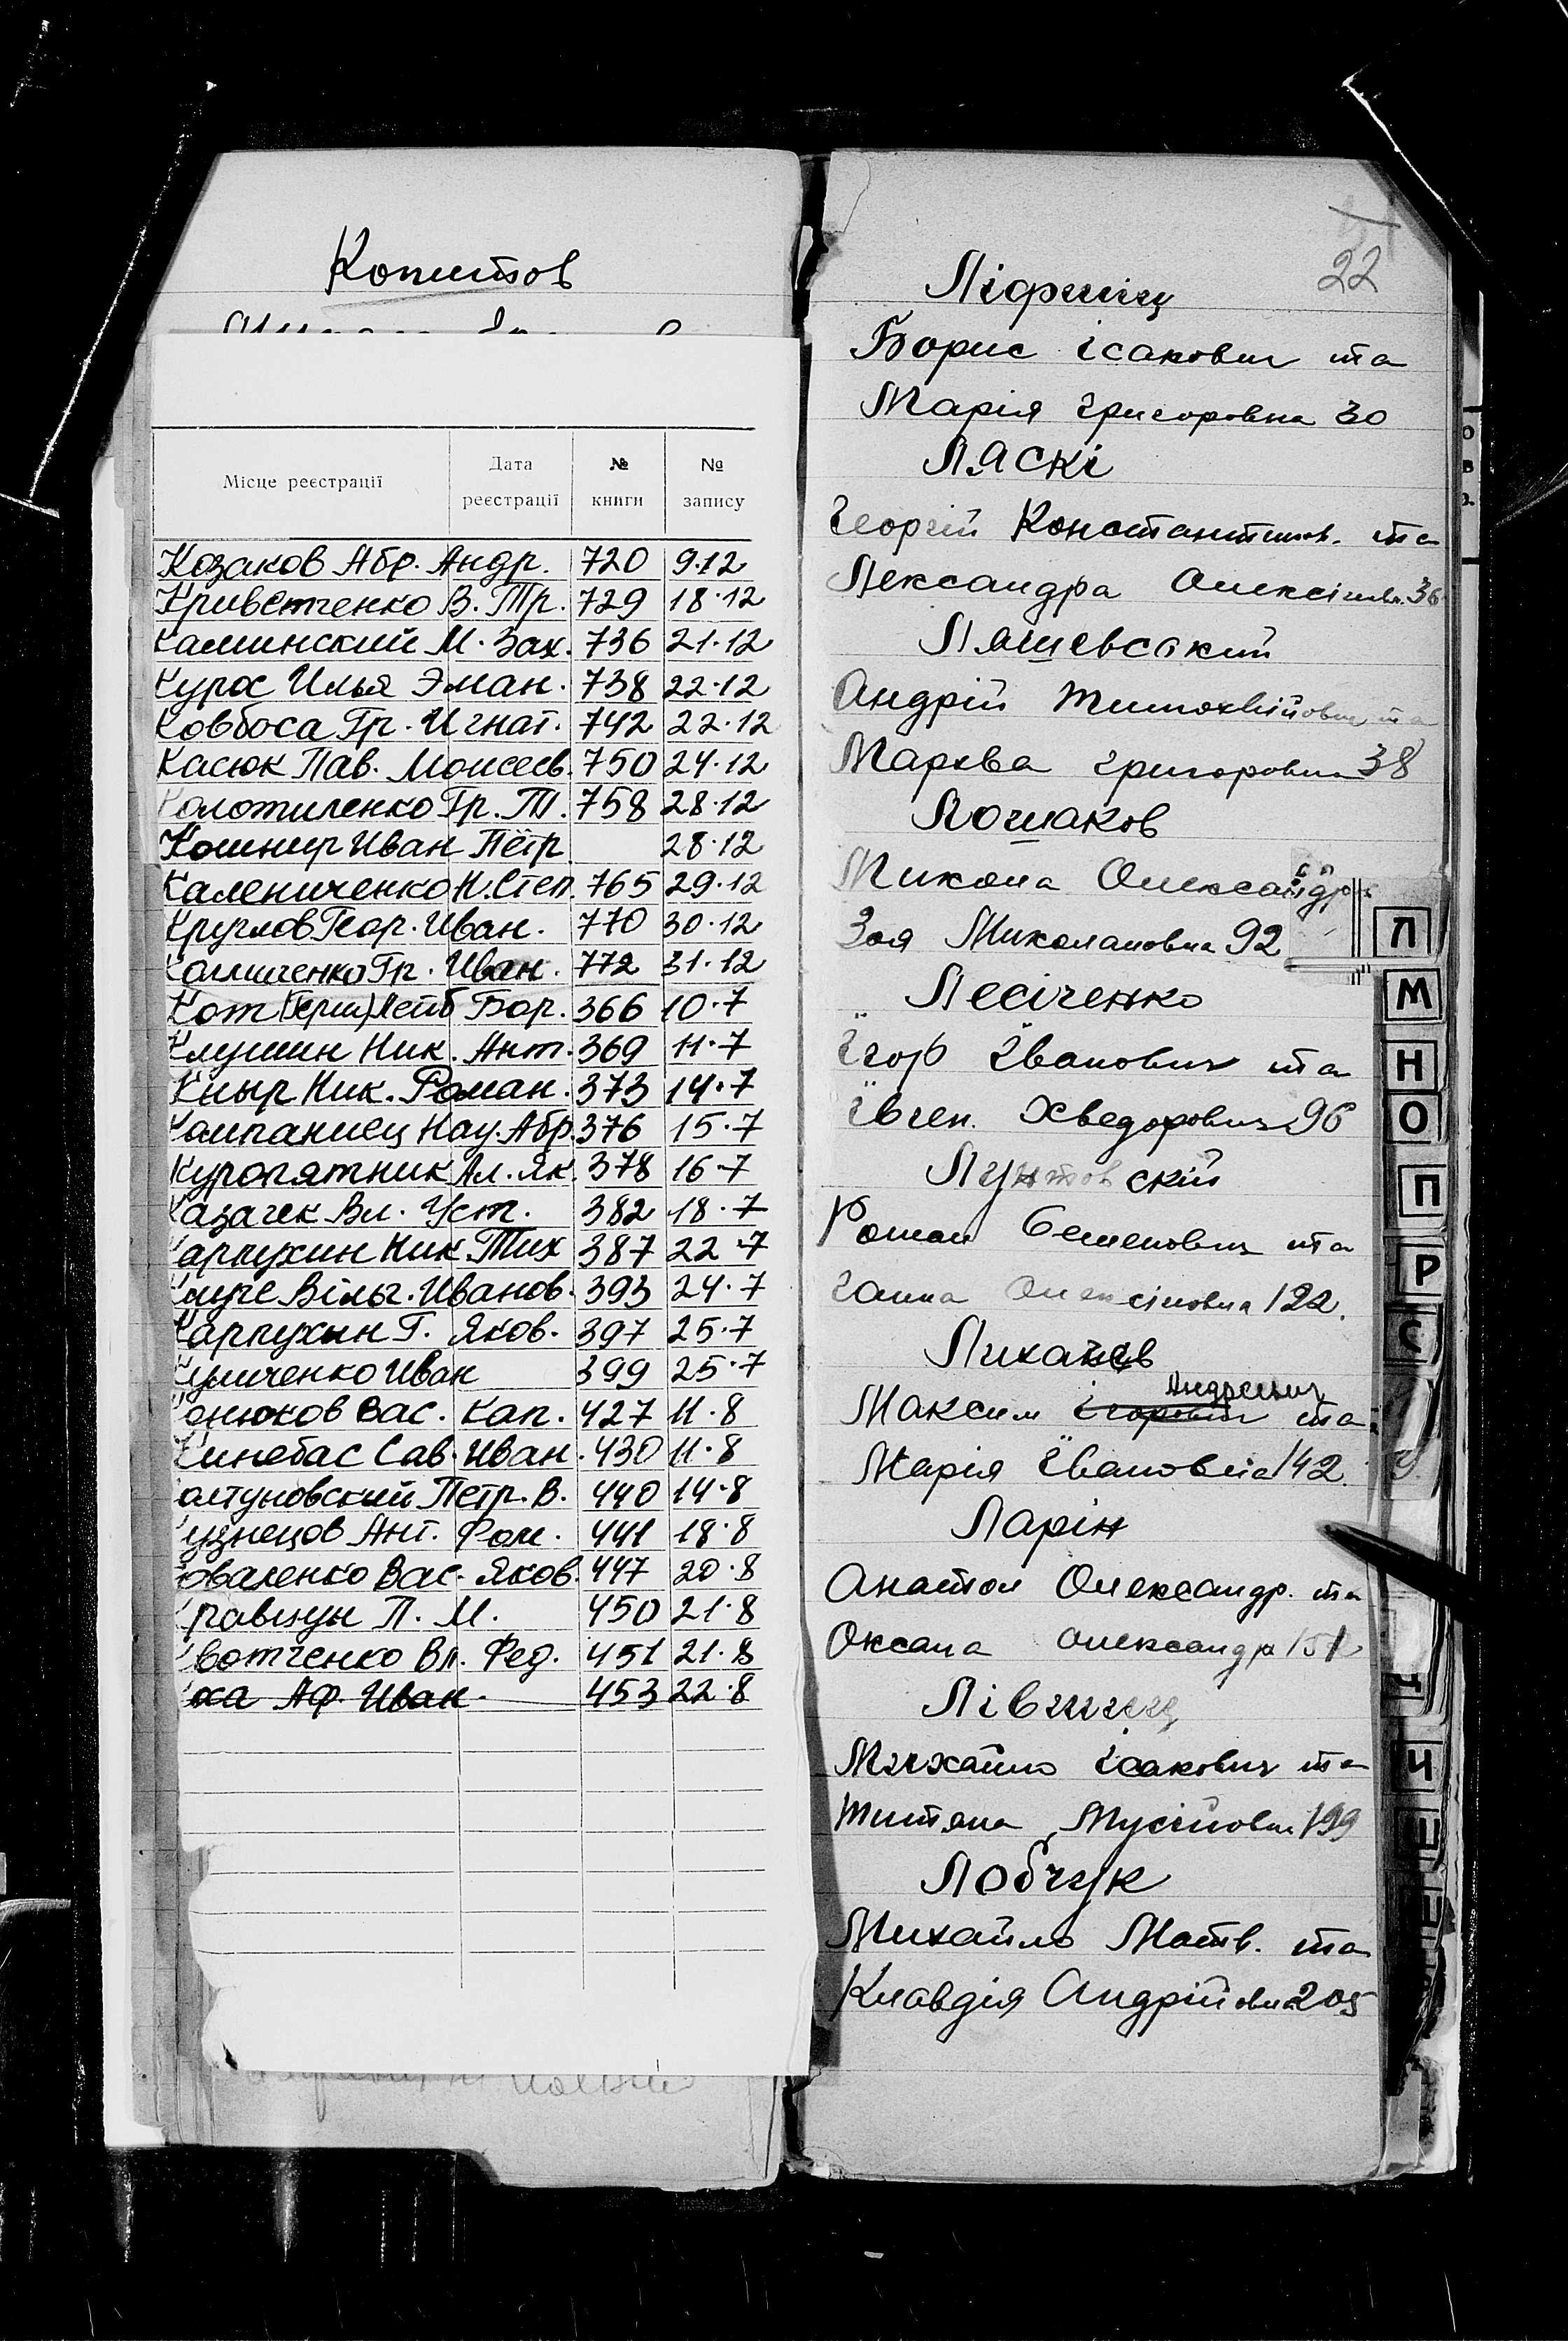 Копитов
Місце реєстрації
Дата реєстрації
№ книги
№ запису
Козаков Абр. Андр. 720 9.12
Криветченко В. Тр. 729 18.12
Каминский М. Зах. 736 21.12
Курос Илья Эман. 738 22.12
Ковбоса Гр. Игнат. 742 22.12
Касюк Пав. Моисеев. 750 24.12
Колотиленко Гр. Т. 758 28.12
Кошнир Иван Пётр 28.12
Калениченко Н. Степ. 765 29.12
Круглов Геор. Иван. 770 30.12
Гр. Иван. 772 31.12
Кот Лейб Бор. 366 10.7
Клушин Ник. Ант. 369 11.7
Кныр Ник. Роман. 373 14.7
Компаниец Нау. Абр. 376 15.7
Куропятник Ал. Як. 378 16.7
Казачек Вл. Уст. 382 18.7
Карпухин Ник. Тих 387 22.7
Иванов. 393 24.7
Карпухин Г. Яков. 397 25.7
Иван 399 25.7
Конюхов Вас. Кап. 427 11.8
Кинебас Сав. Иван. 430 11.8
олтуновский Петр. В. 440 14.8
узнецов Ант. Фом. 441 18.8
оваленко Вас. Яков. 447 20.8
равцун П. М. 450 21.8
вотченко Вл. Фед. 451 21.8
Аф. Иван. 453 22.8
22
Ліфшіц
Борис Ісакович та
Марія Григоровна 30
Ляскі
Георгій Константинов. та
Лександра Олексіївн. 36
Ляшевський
Андрій Тимохвійович та
Марква Григоровна 38
Лошаков
Микола Олександр.
Зоя Миколаєвна 92
Лесіченко
Ігор Іванович та
Євген. Хведорович 96
Лунтовскій
Роман Семенович та
Ганна Олексіївна 122.
Лихачев
Андреевич
Максим Ігорович та
Марія Івановна 142
Ларін
Анатол Олександр. та
Оксана Олександр 151
Лівшиц
Михайло Ісакович та
Титяна Мусіївна 199
Лобчук
Михайло Матв. та
Клавдія Андрійовна 205
Л
М
Н
О
П
Р
С
У
Ц
Ч